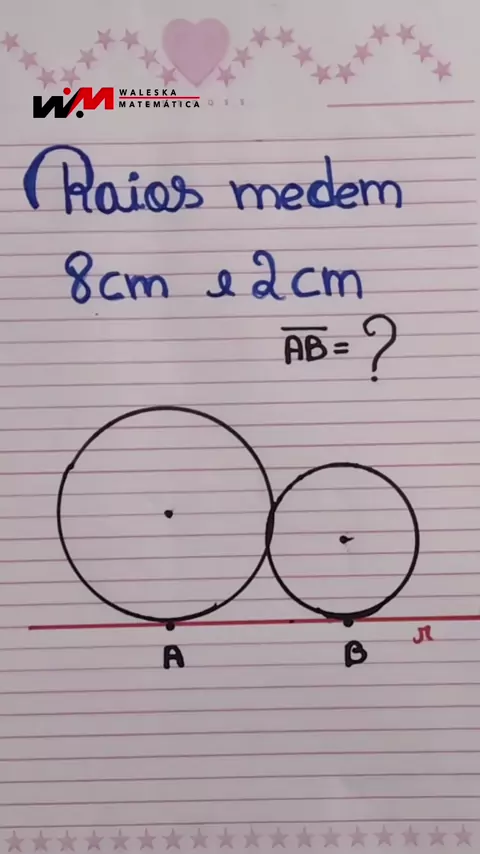 WM WALESKA
MATEMÁTICA
Raios medem
8cm e 2cm
AB = ?
A
B
r